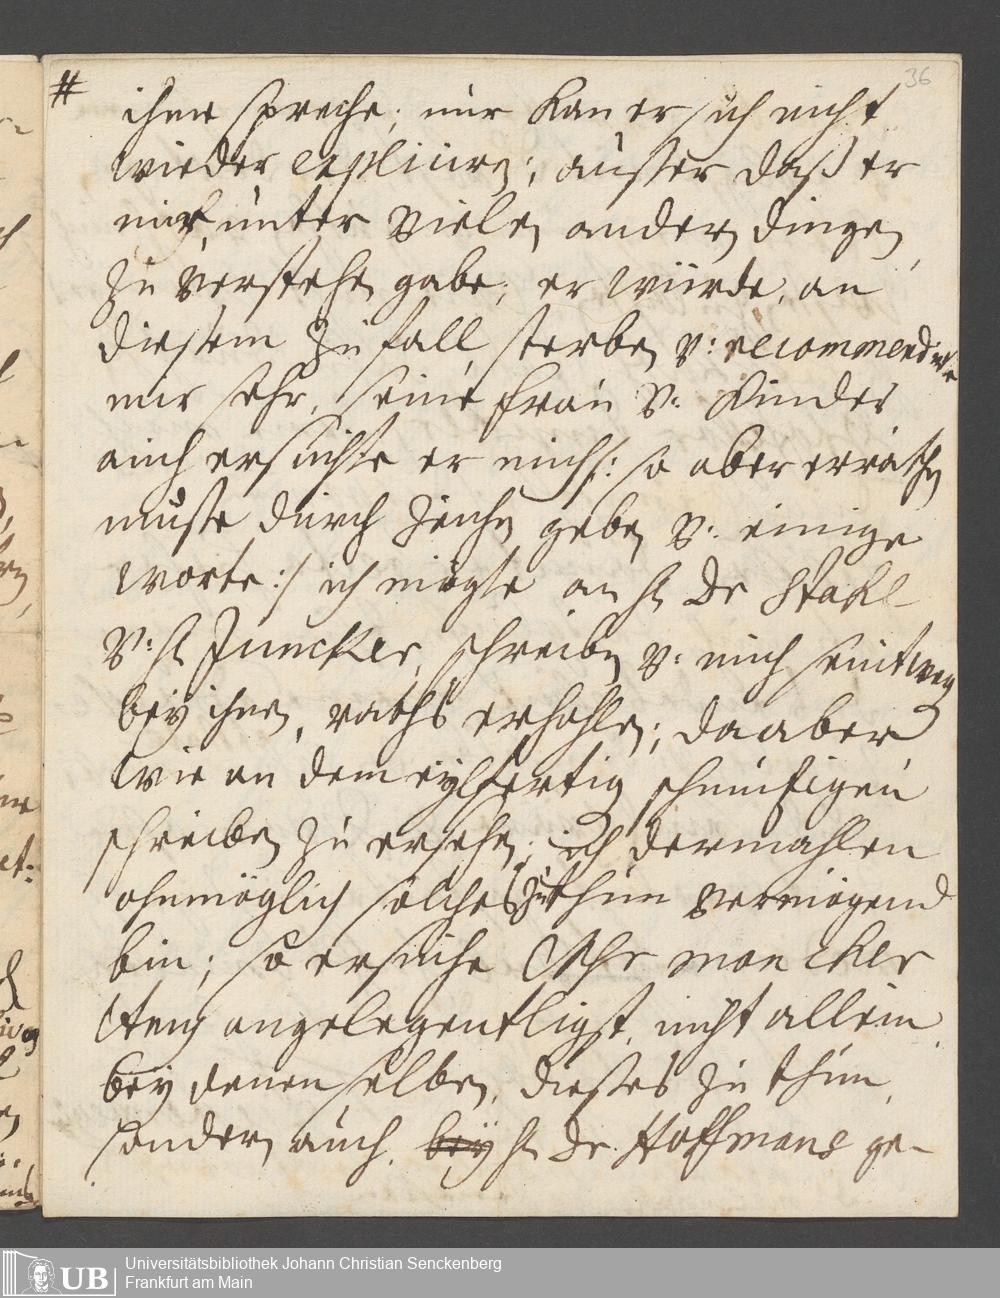 #
36
ihm spreche; nur kan er sich nicht
wieder expliciren; ausser daß er
mir, unter vielen andern dingen,
zu verstehen gabe, er würde, an
diesem Zufall sterben v: recommendirte
mir sehr, seine frau v: Kinder
auch ersuchte er mich /: so aber errathen
muste durch Zeichen geben v: einige
worte :/ ich mögte an H Dr Stahl
v: H Juncker, schreiben v: mich seintwegen
bey ihnen, raths erhohlen; da aber
wie an dem eylfertig
schreiben zu ersehen, ich dermahlen
ohnmöglich solches zu thun vermögend
bin; so ersuche Ihr mon cher
angelegentligst, nicht allein
bey denenselben, dieses zu thun,
sondern auch, bey H Dr Hoffmann ge-
UB
Universitätsbibliothek Johann Christian Senckenberg
Frankfurt am Main